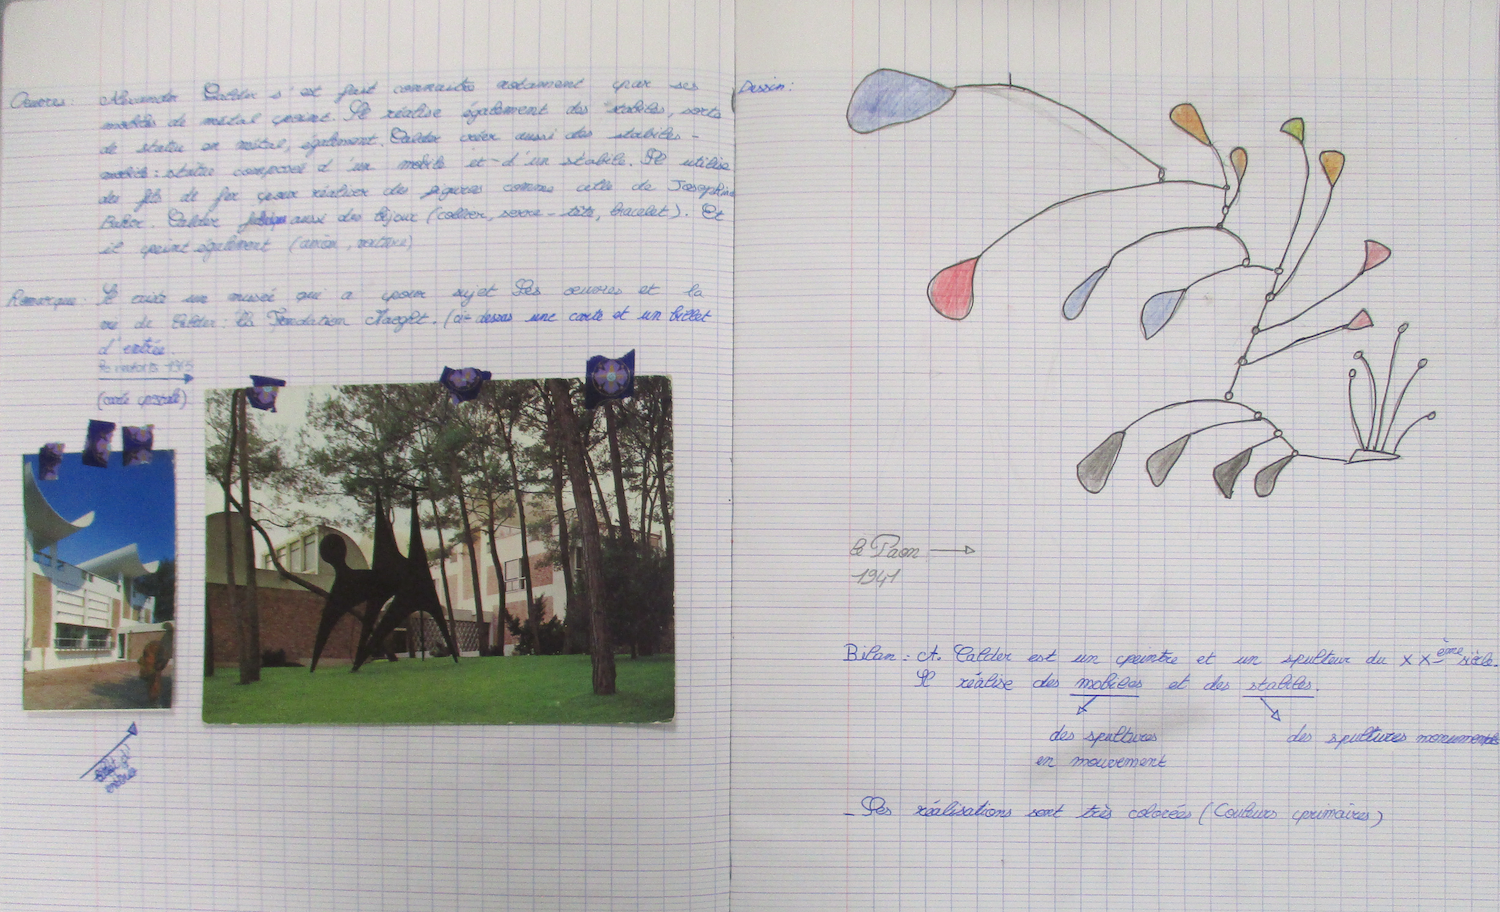 Oeuvres: Alexander Calder s'est fait connaitre notamment par ses
mobiles de métal peint. Il réalise également des stabiles, sorte
de statue en métal, également. Calder créer aussi des stabiles-
mobile: statue composé d'un mobile et d'un stabile. Il utilise
des fils de fer pour réaliser des figures comme celle de Joséphine
Baker. Calder aussi des bijoux (collier, serre-tête, bracelet). Et
il peint également
Remarque: Il existe un musé qui a pour sujet les oeuvres et la
vie de Calder: la Fondation Maeght. (ci-dessous une carte et un billet
d'entrée.
(carte postale)
billet d'
entrée
Dessin:
le Paon
1941
Bilan: A. Calder est un peintre et un sculteur du XXème siècle.
Il réalise des mobiles et des stabiles.
des scultures
en mouvement
des scultures monumentales
- Ses réalisations sont très colorées (Couleurs primaires)